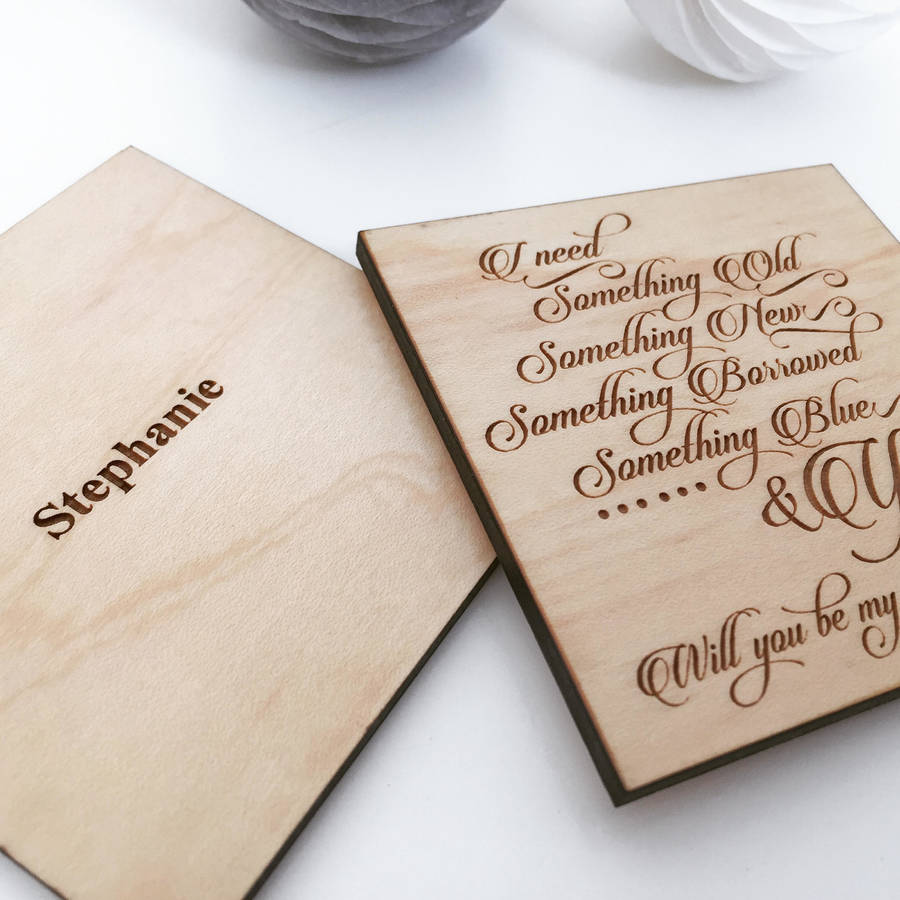 Stephanie
I need
Something Old
Something New
Something Borrowed
Something Blue
......
&
Will you be my